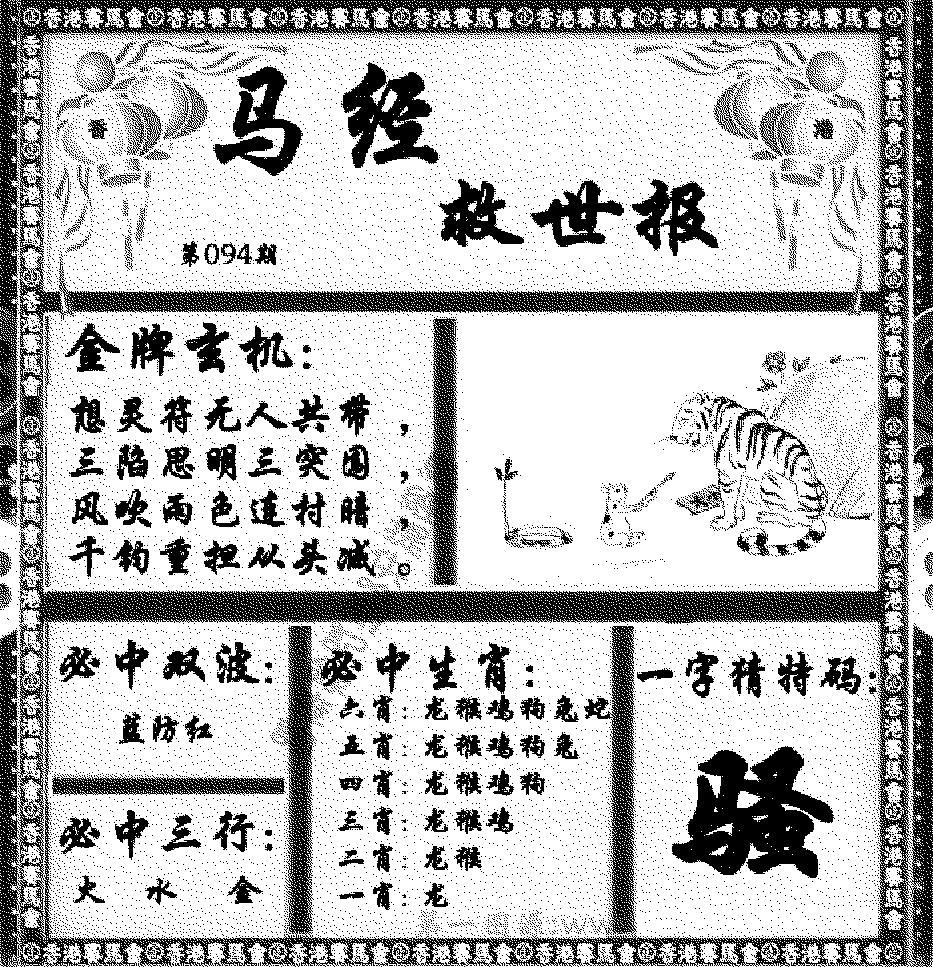 香港賽馬會香港賽馬會香港賽馬會香港賽馬會香港賽馬會香港賽馬會香港賽馬會
香
港
马经
救世报
第094期
金牌玄机：
想灵符无人共带，
三陷思明三突围，
风吹雨色连村暗，
千钧重担从头减。
必中双波：
蓝防红
必中三行：
火 水 金
必中生肖：
六肖：龙猴鸡狗兔蛇
五肖：龙猴鸡狗兔
四肖：龙猴鸡狗
三肖：龙猴鸡
二肖：龙猴
一肖：龙
一字猜特码：
骚
香港賽馬會香港賽馬會香港賽馬會香港賽馬會香港賽馬會香港賽馬會香港賽馬會